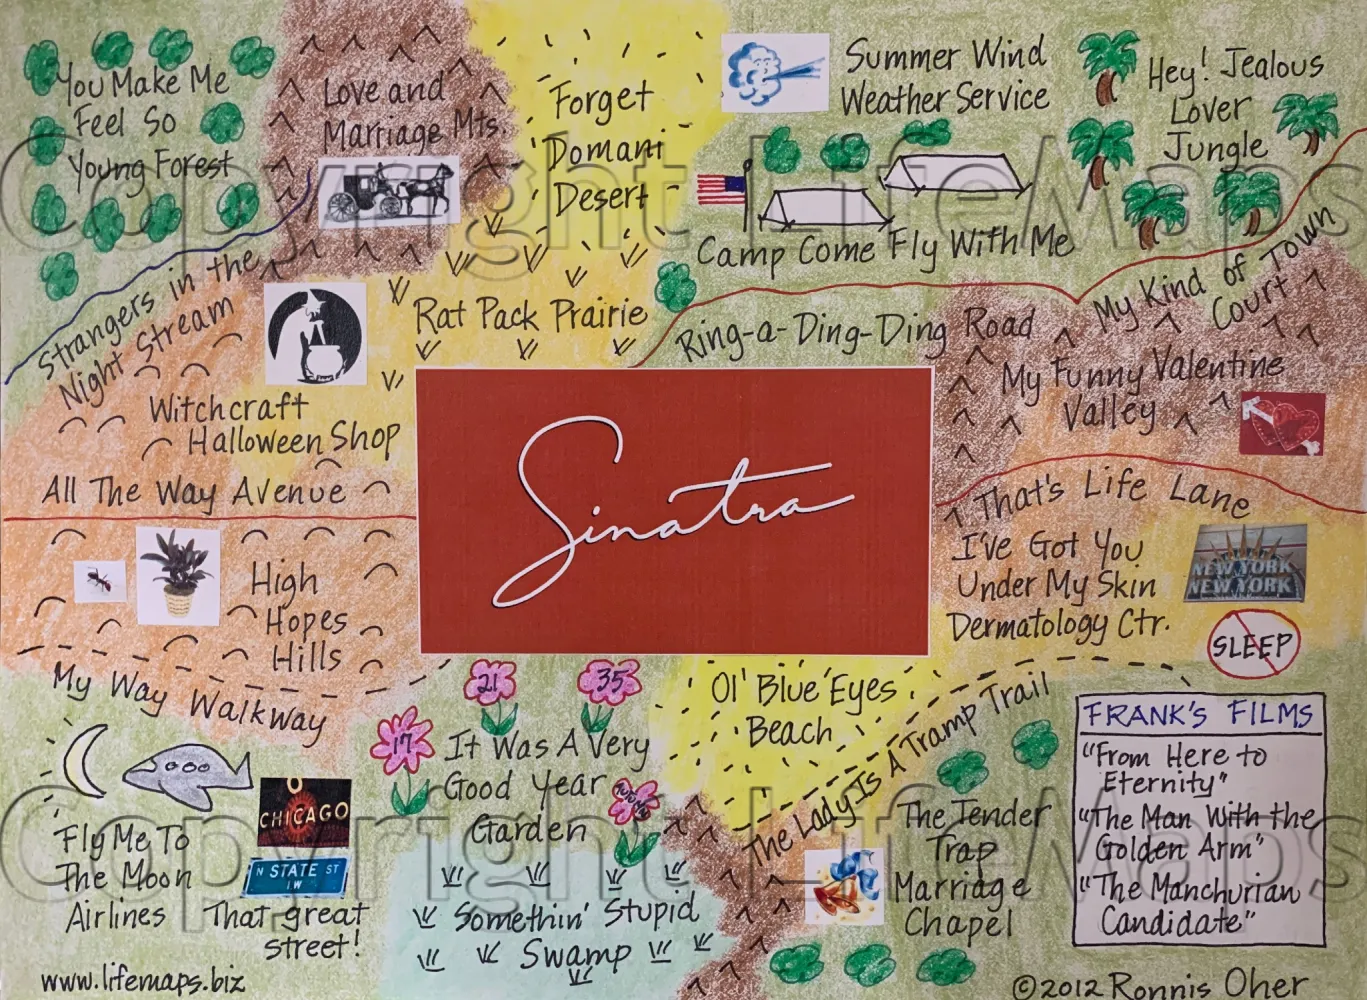 You Make Me
Feel So
Young Forest
Love and
Marriage Mts.
Forget
Domani
Desert
Summer Wind
Weather Service
Hey! Jealous
Lover
Jungle
Camp Come Fly With Me
Strangers in the
Night Stream
Rat Pack Prairie
Ring-a-Ding-Ding Road
My Kind of Town
Court
My Funny Valentine
Valley
Witchcraft
Halloween Shop
All The Way Avenue
Sinatra
That's Life Lane
I've Got You
Under My Skin
Dermatology Ctr.
NEW YORK
NEW YORK
SLEEP
High
Hopes
Hills
My Way Walkway
21
35
17
It Was A Very
Good Year
Garden
Ol' Blue Eyes
Beach
The Lady Is A Tramp Trail
FRANK'S FILMS
"From Here to
Eternity"
"The Man With the
Golden Arm"
"The Manchurian
Candidate"
Fly Me To
The Moon
Airlines
CHICAGO
N STATE ST
1 W
That great
street!
Somethin' Stupid
Swamp
The Tender
Trap
Marriage
Chapel
www.lifemaps.biz
©2012 Ronnis Oher
Copyright LifeMaps
Copyright LifeMaps